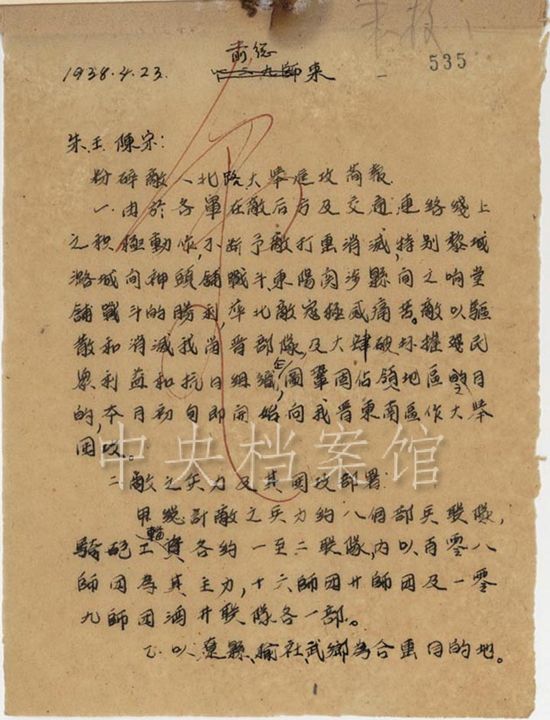 535
前总
1938.4.23. 一二九師來
朱.王.陳宋:
粉碎敵八北路大舉進攻簡報
一.由於各軍在敵后方及交通連絡綫上
之积極動作,不斷予敵打击消滅,特别黎城
潞城间神頭舖戰斗,東陽関涉縣间之响堂
舖戰斗的勝利,华北敵寇極感痛苦。敵以驅
散和消滅我當晋部隊,及大肆破坏摧殘民
眾利益和抗日組織,企圖鞏固佔領地區的目
的,本月初旬即開始向我晋東南區作大舉
囲攻。
二.敵之兵力及其囲攻部署:
甲.總計敵之兵力約八個部兵联隊,
騎砲工輜資各約一至二联隊,内以百零八
師団為其主力,十六師団廿師団及一零
九師団酒井联隊各一部。
乙.以襄縣,榆社,武鄉為合击目的地。
1
中央档案馆